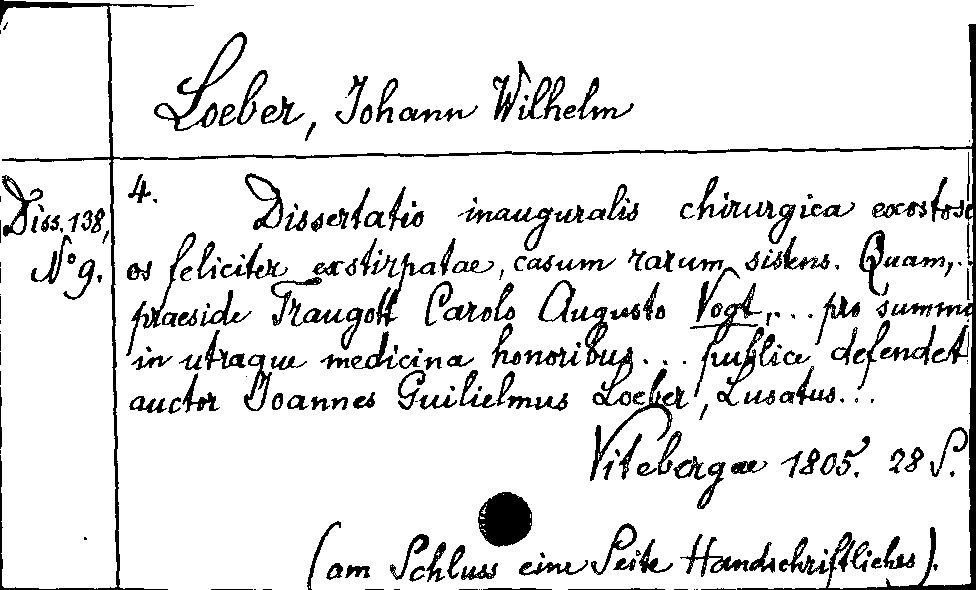 Loeber, Johann Wilhelm
Diss. 138,
N° 9.
4. Dissertatio inauguralis chirurgica exostose
os feliciter exstirpatae, casum rarum sistens. Quam, ..
praeside Traugott Carolo Augusto Vogt, ... pro summo
in utraque medicina honoribus ... publice defendet
auctor Joannes Guilielmus Loeber, Lusatus ...
Vitebergae 1805. 28 S.
(am Schluss eine Seite Handschriftliches).